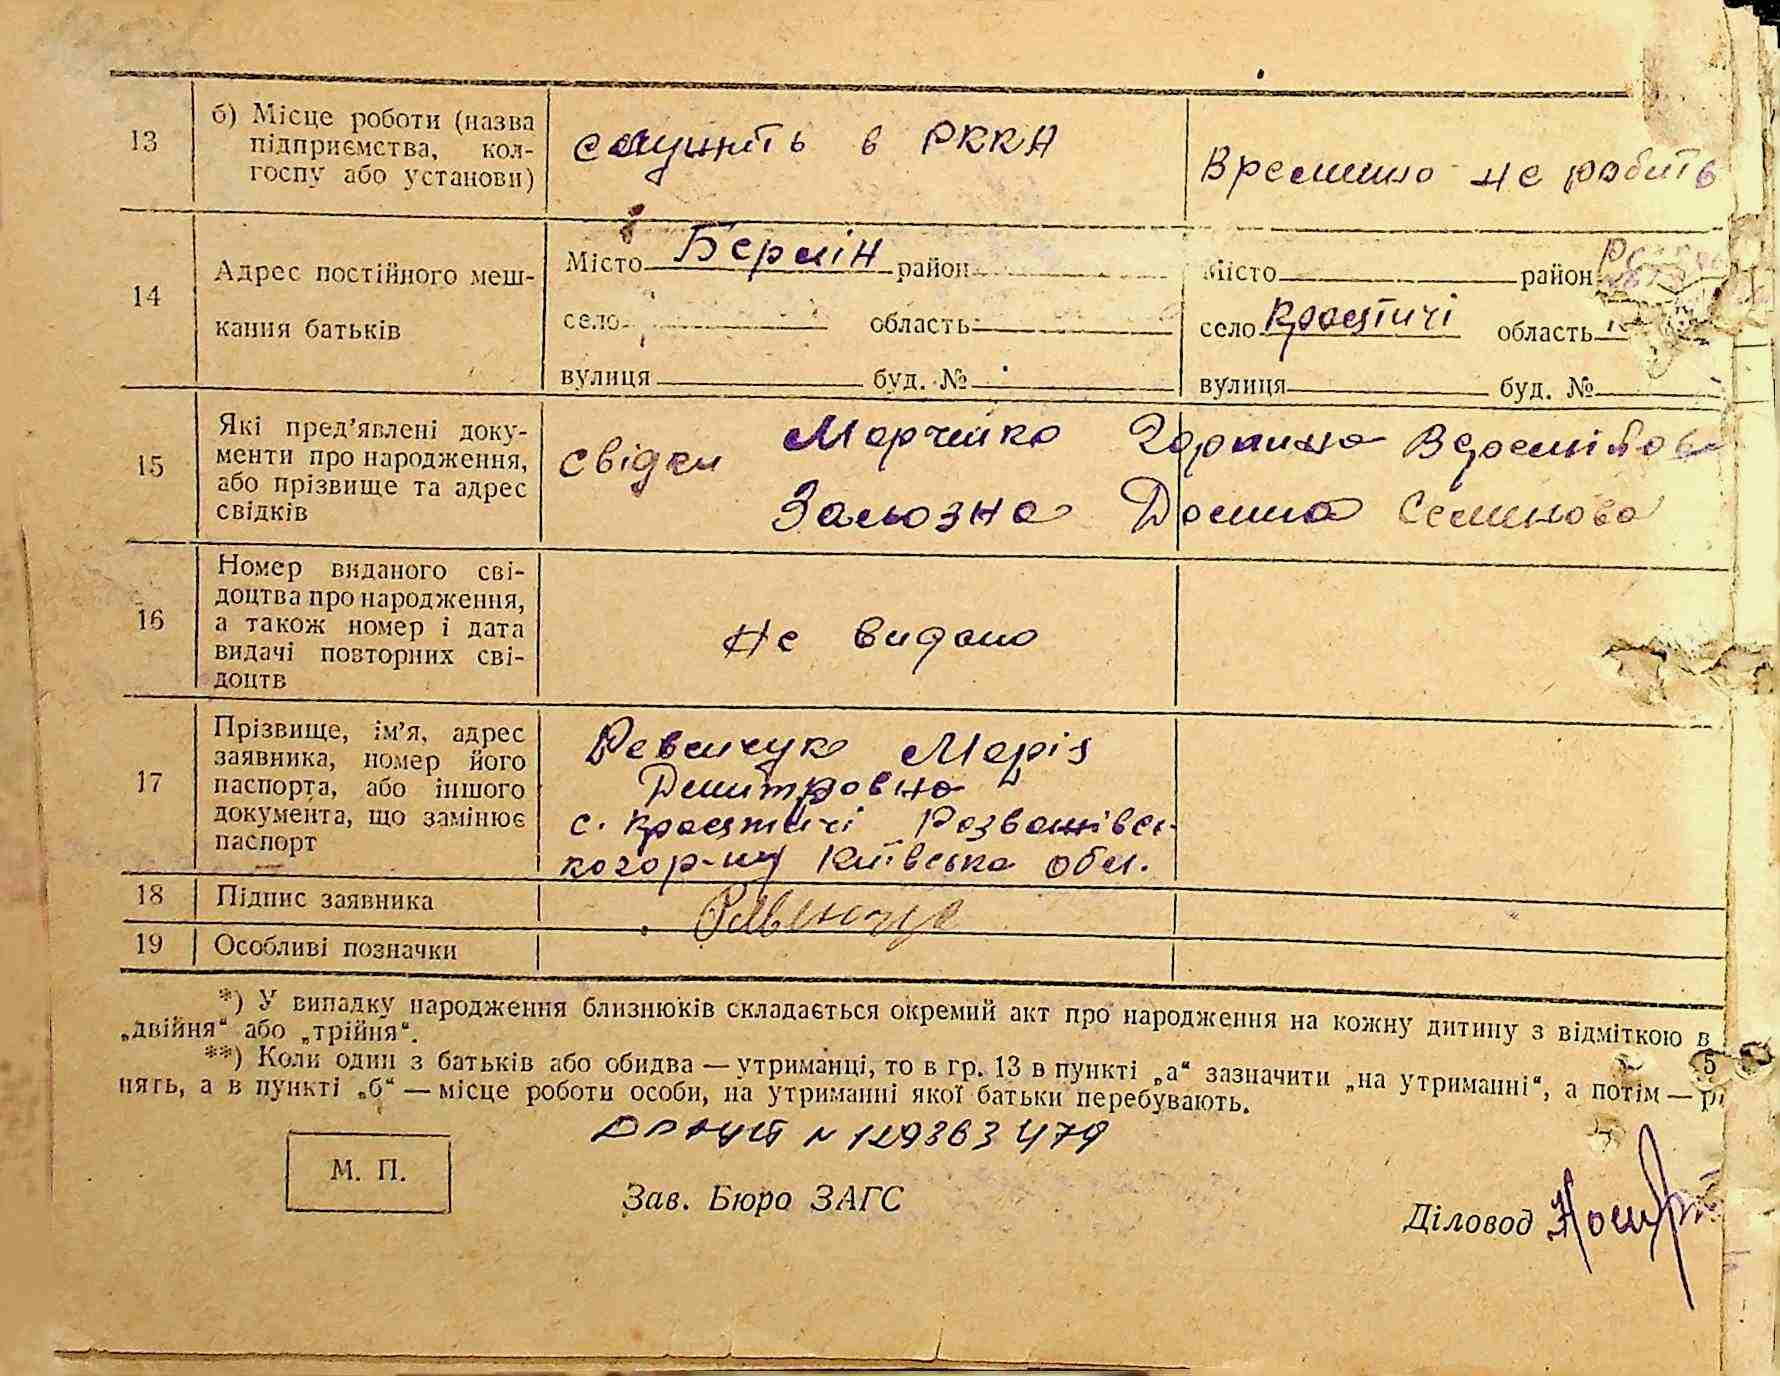 13 б) Місце роботи (назва підприємства, колгоспу або установи) служить в РККА Временно не робить
14 Адрес постійного мешкання батьків
Місто Берлін район
село область
вулиця буд. №
Місто район
село Кростичі область
вулиця буд. №
15 Які пред’явлені документи про народження, або прізвище та адрес свідків
свідки Марченко Горпина
Зальозна Домна Семенова
16 Номер виданого свідоцтва про народження, а також номер і дата видачі повторних свідоцтв
не видано
17 Прізвище, ім’я, адрес заявника, номер його паспорта, або іншого документа, що замінює паспорт
Ревенчук Марія
Дмитровна
с. Кростичі Розважівсь-
кого р-ну Київська обл.
18 Підпис заявника
19 Особливі позначки
*) У випадку народження близнюків складається окремий акт про народження на кожну дитину з відміткою в
„двійня“ або „трійня“.
**) Коли один з батьків або обидва — утриманці, то в гр. 13 в пункті „а“ зазначити „на утриманні“, а потім —
нять, а в пункті „б“ — місце роботи особи, на утриманні якої батьки перебувають.
N 129363479
М. П.
Зав. Бюро ЗАГС
Діловод
5